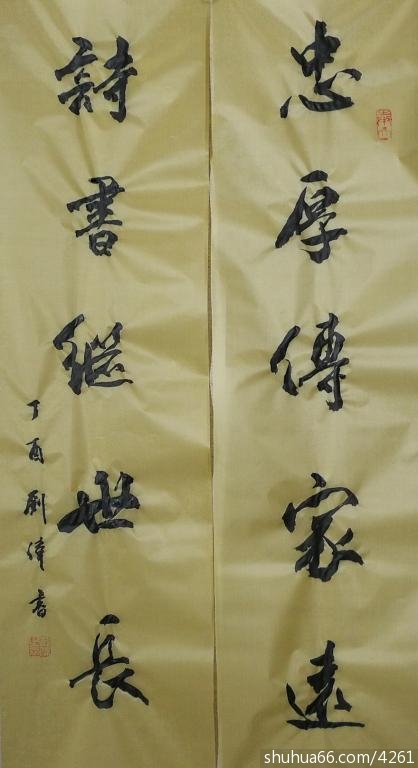 忠厚傳家遠
詩書繼世長
丁酉劉偉書
shuhua66.com/4261